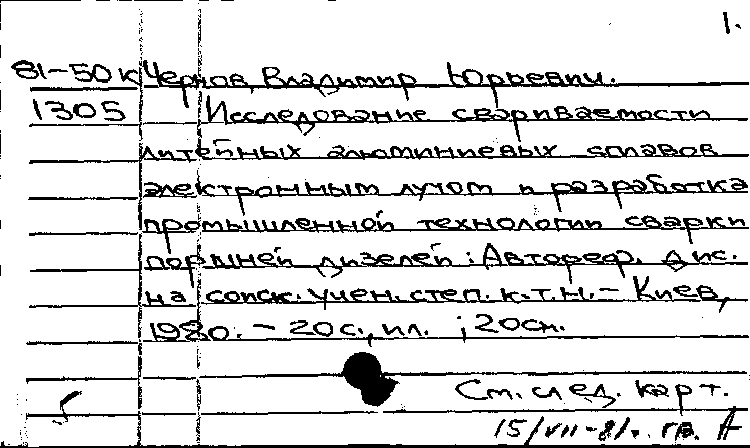 1.
81-50к Чернов, Владимир Юрьевич.
1305 Исследование свариваемости
литейных алюминиевых сплавов
электронным лучом и разработка
промышленной технологии сварки
поршней дизелей: Автореф. дис.
на соиск. учен. степ. к.т.н. - Киев,
1980. - 20 с., ил. ; 20 см.
См. след. карт.
15/VII-81г.